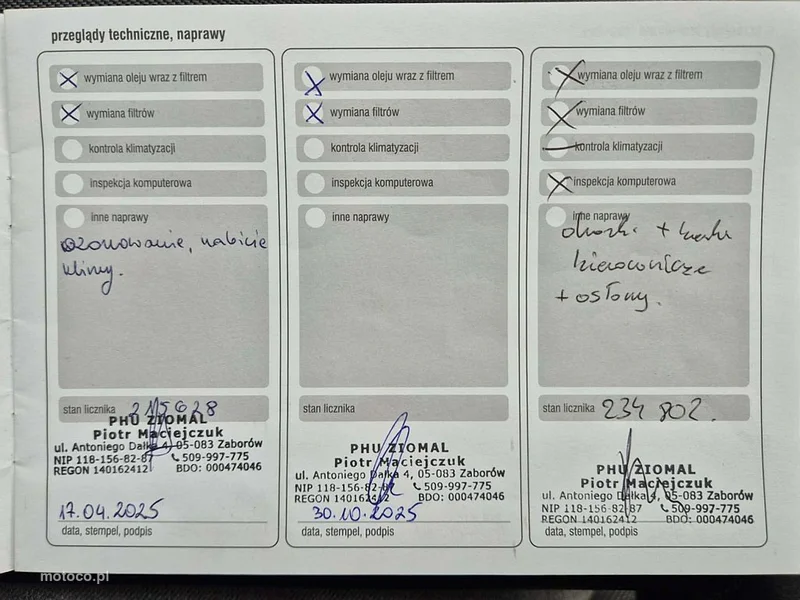 przeglądy techniczne, naprawy
wymiana oleju wraz z filtrem
wymiana filtrów
kontrola klimatyzacji
inspekcja komputerowa
inne naprawy
ozonowanie, nabicie
klimy.
stan licznika 215628
PHU ZIOMAL
Piotr Maciejczuk
ul. Antoniego Dalka 4, 05-083 Zaborów
NIP 118-156-82-87 509-997-775
REGON 140162412 BDO: 000474046
17.04.2025
data, stempel, podpis
wymiana oleju wraz z filtrem
wymiana filtrów
kontrola klimatyzacji
inspekcja komputerowa
inne naprawy
stan licznika
PHU ZIOMAL
Piotr Maciejczuk
ul. Antoniego Dalka 4, 05-083 Zaborów
NIP 118-156-82-87 509-997-775
REGON 140162412 BDO: 000474046
30.10.2025
data, stempel, podpis
wymiana oleju wraz z filtrem
wymiana filtrów
kontrola klimatyzacji
inspekcja komputerowa
inne naprawy
drążki +
kierownicze
+ osłony.
stan licznika 234 802.
PHU ZIOMAL
Piotr Maciejczuk
ul. Antoniego Dalka 4, 05-083 Zaborów
NIP 118-156-82-87 509-997-775
REGON 140162412 BDO: 000474046
data, stempel, podpis
motoco.pl